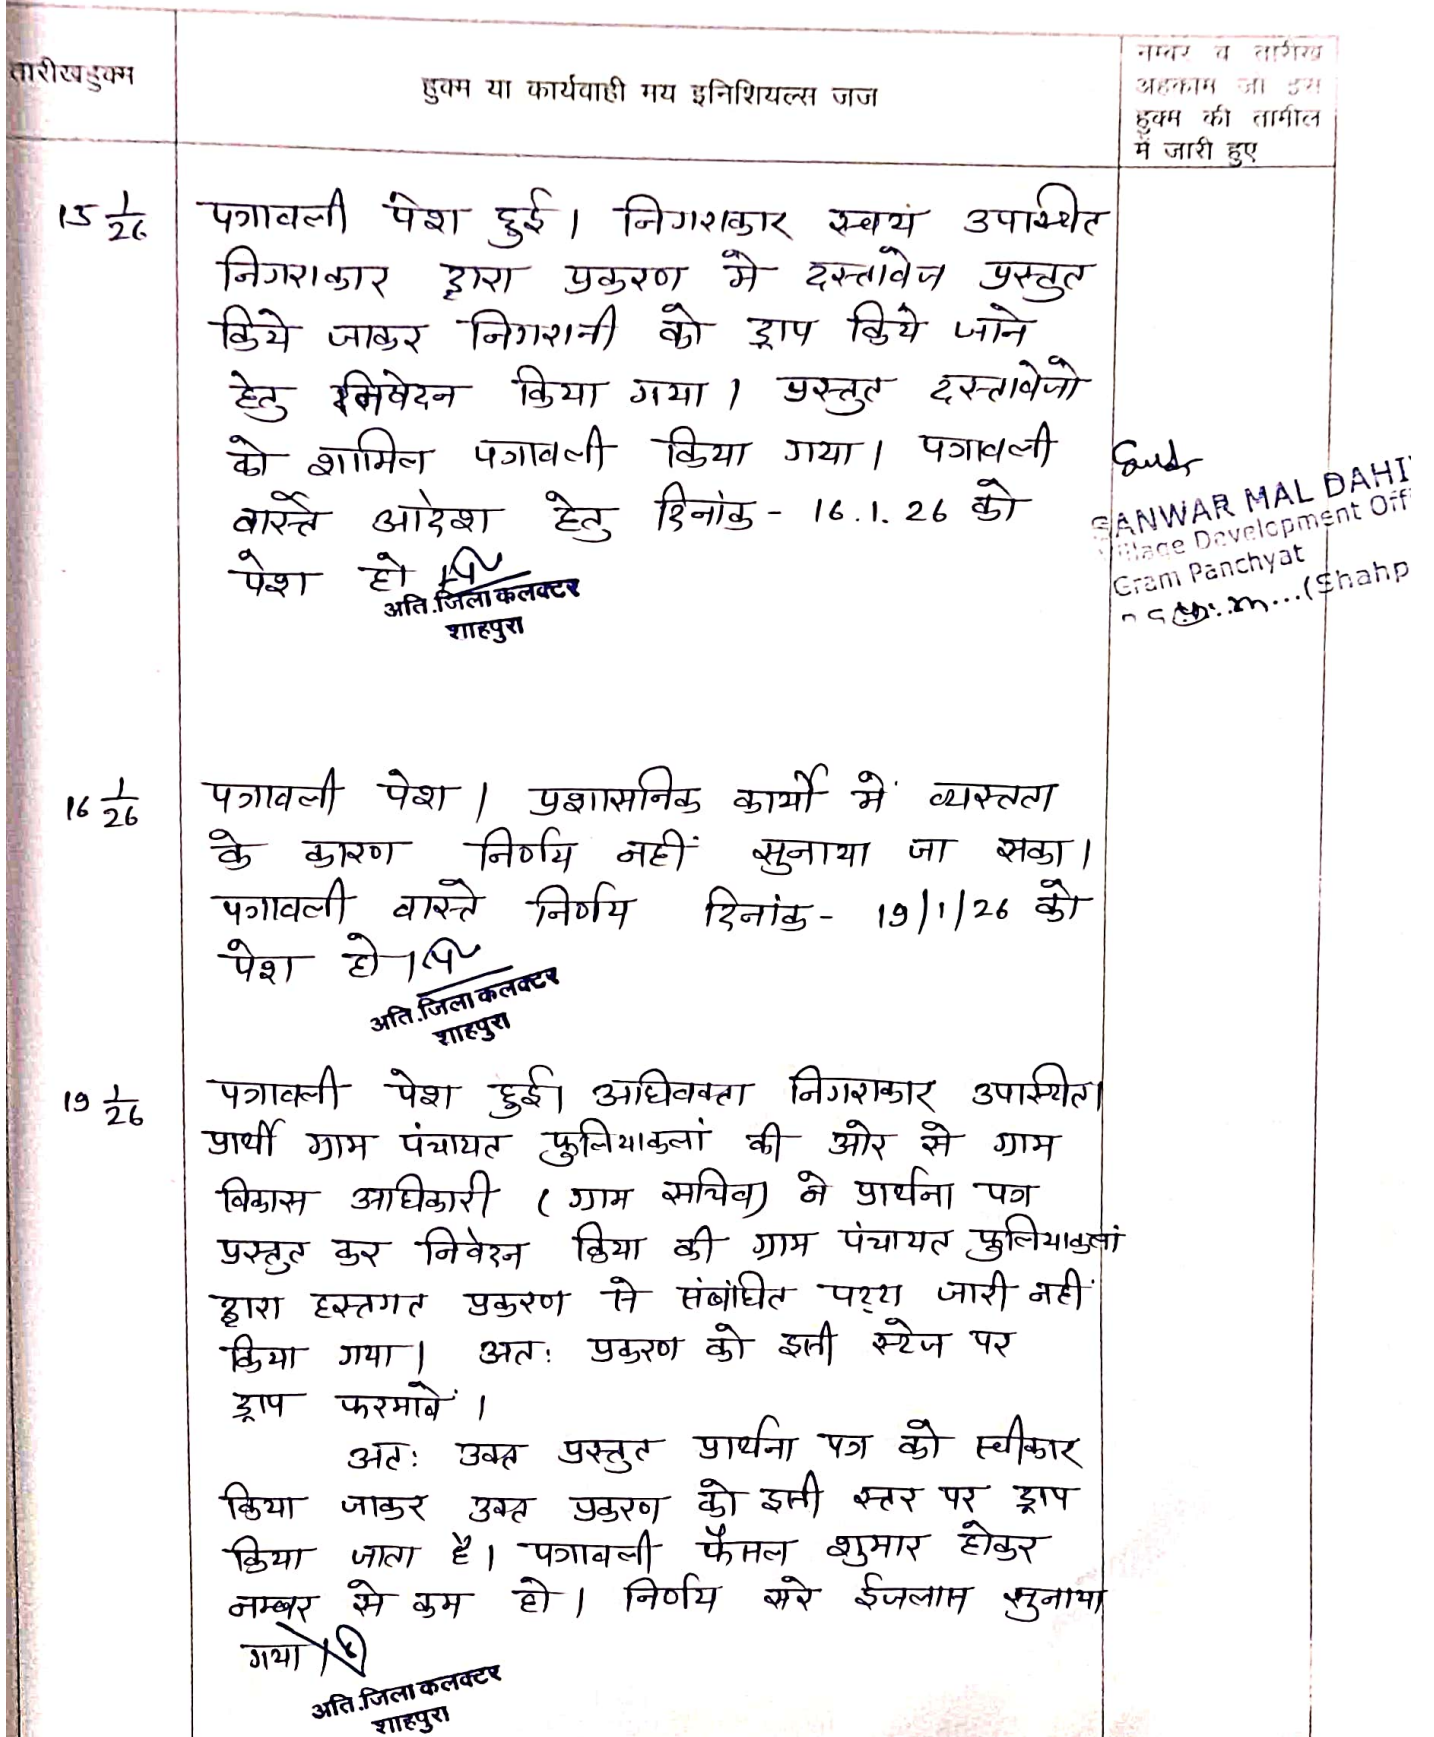 तारीखहुक्म
हुक्म या कार्यवाही मय इनिशियल्स जज
नम्बर व तारीख
अहकाम जो इस
हुक्म की तामील
में जारी हुए
15 1/26
पत्रावली पेश हुई। निगराकार स्वयं उपस्थित
निगराकार द्वारा प्रकरण मे दस्तावेज प्रस्तुत
किये जाकर निगरानी को ड्राप किये जाने
हेतु निवेदन किया गया। प्रस्तुत दस्तावेजो
को शामिल पत्रावली किया गया। पत्रावली
वास्ते आदेश हेतु दिनांक - 16.1.26 को
पेश हो
अति.जिला कलक्टर
शाहपुरा
SANWAR MAL DAHI
Village Development Off
Gram Panchyat
(Shahp
16 1/26
पत्रावली पेश। प्रशासनिक कार्यो में व्यस्तता
के कारण निर्णय नहीं सुनाया जा सका।
पत्रावली वास्ते निर्णय दिनांक - 19/1/26 को
पेश हो।
अति.जिला कलक्टर
शाहपुरा
19 1/26
पत्रावली पेश हुई। अधिवक्ता निगराकार उपस्थित।
प्रार्थी ग्राम पंचायत फुलियाकलां की ओर से ग्राम
विकास अधिकारी (ग्राम सचिव) ने प्रार्थना पत्र
प्रस्तुत कर निवेदन किया की ग्राम पंचायत फुलियाकलां
द्वारा हस्तगत प्रकरण से संबंधित पट्टा जारी नहीं
किया गया। अतः प्रकरण को इसी स्टेज पर
ड्राप फरमावें।
अतः उक्त प्रस्तुत प्रार्थना पत्र को स्वीकार
किया जाकर उक्त प्रकरण को इसी स्तर पर ड्राप
किया जाता है। पत्रावली फैसल शुमार होकर
नम्बर से कम हो। निर्णय सरे ईजलास सुनाया
गया।
अति.जिला कलक्टर
शाहपुरा